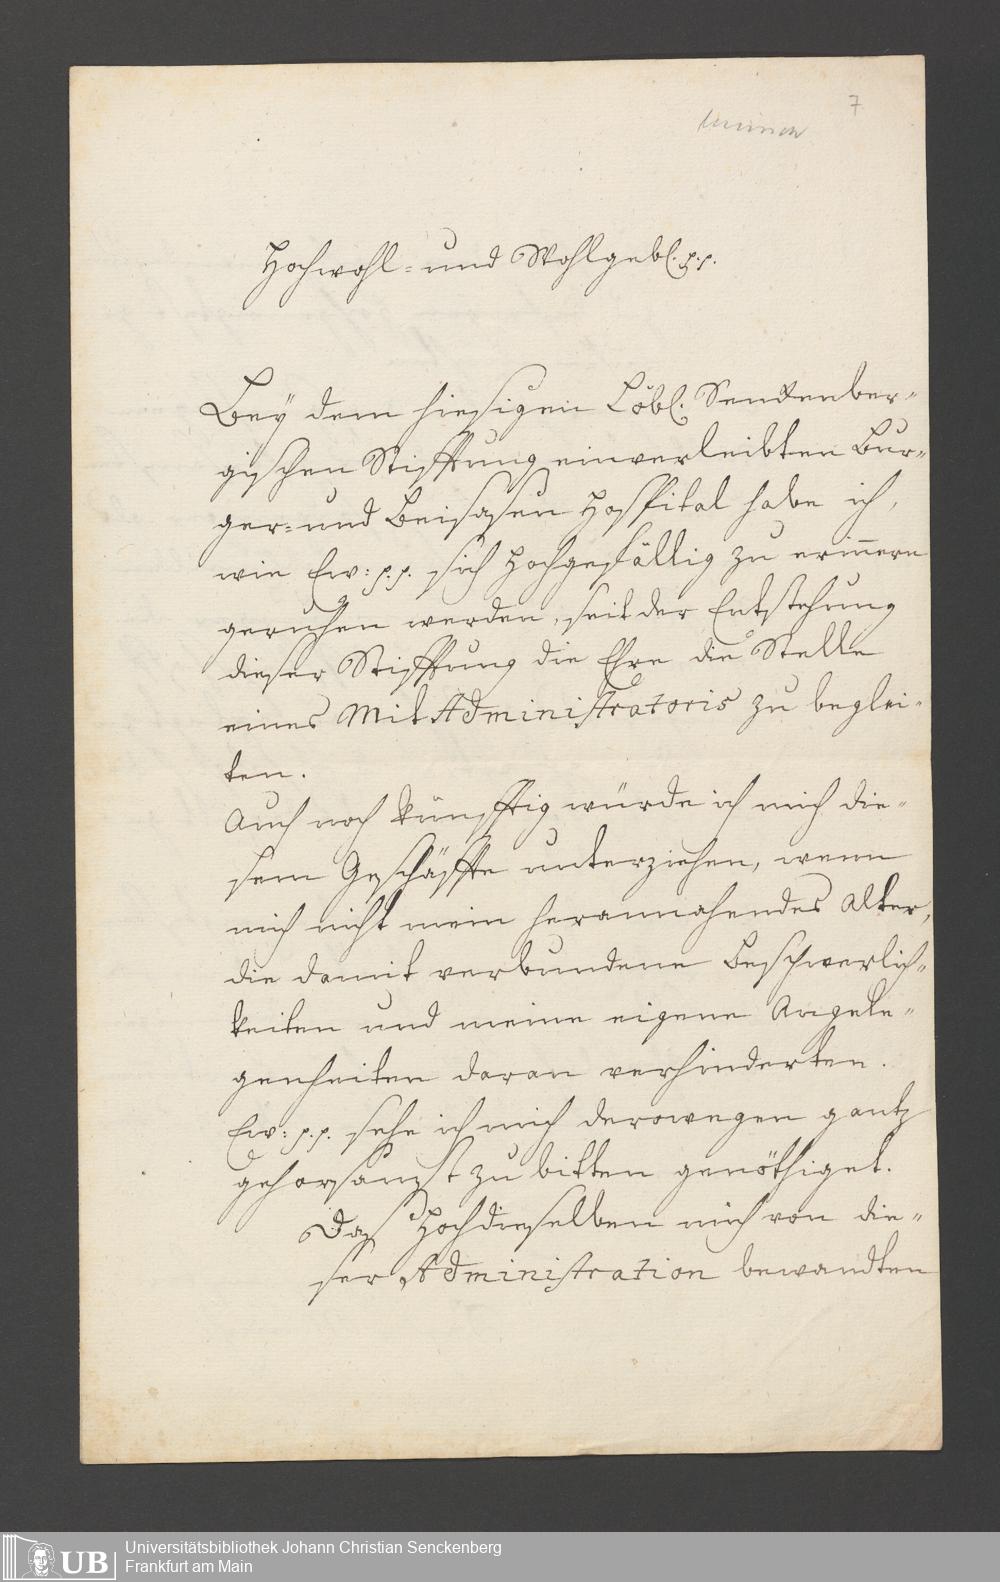 7
Hochwohl- und Wohlgebl. p. p.
Bey dem hiesigen Löbl. Senckenber-
gischen Stifftung einverleibten Bur-
ger- und Beisasen Hospital habe ich,
wie Ew: p. p. sich hochgefällig zu erinnern
geruhen werden, seit der Entstehung
dieser Stifftung die Ehre die Stelle
eines Mit Administratoris zu beglei-
ten.
Auch noch künfftig würde ich mich die-
sem Geschäffte unterziehen, wenn
mich nicht mein herannahendes Alter,
die damit verbundene Beschwerlich-
keiten und meine eigene Angele-
genheiten daran verhinderten.
Ew: p. p. sehe ich mich derowegen gantz
gehorsamst zu bitten genöthiget.
Daß Hochdieselben mich von die-
ser Administration bewandten
UB
Universitätsbibliothek Johann Christian Senckenberg
Frankfurt am Main